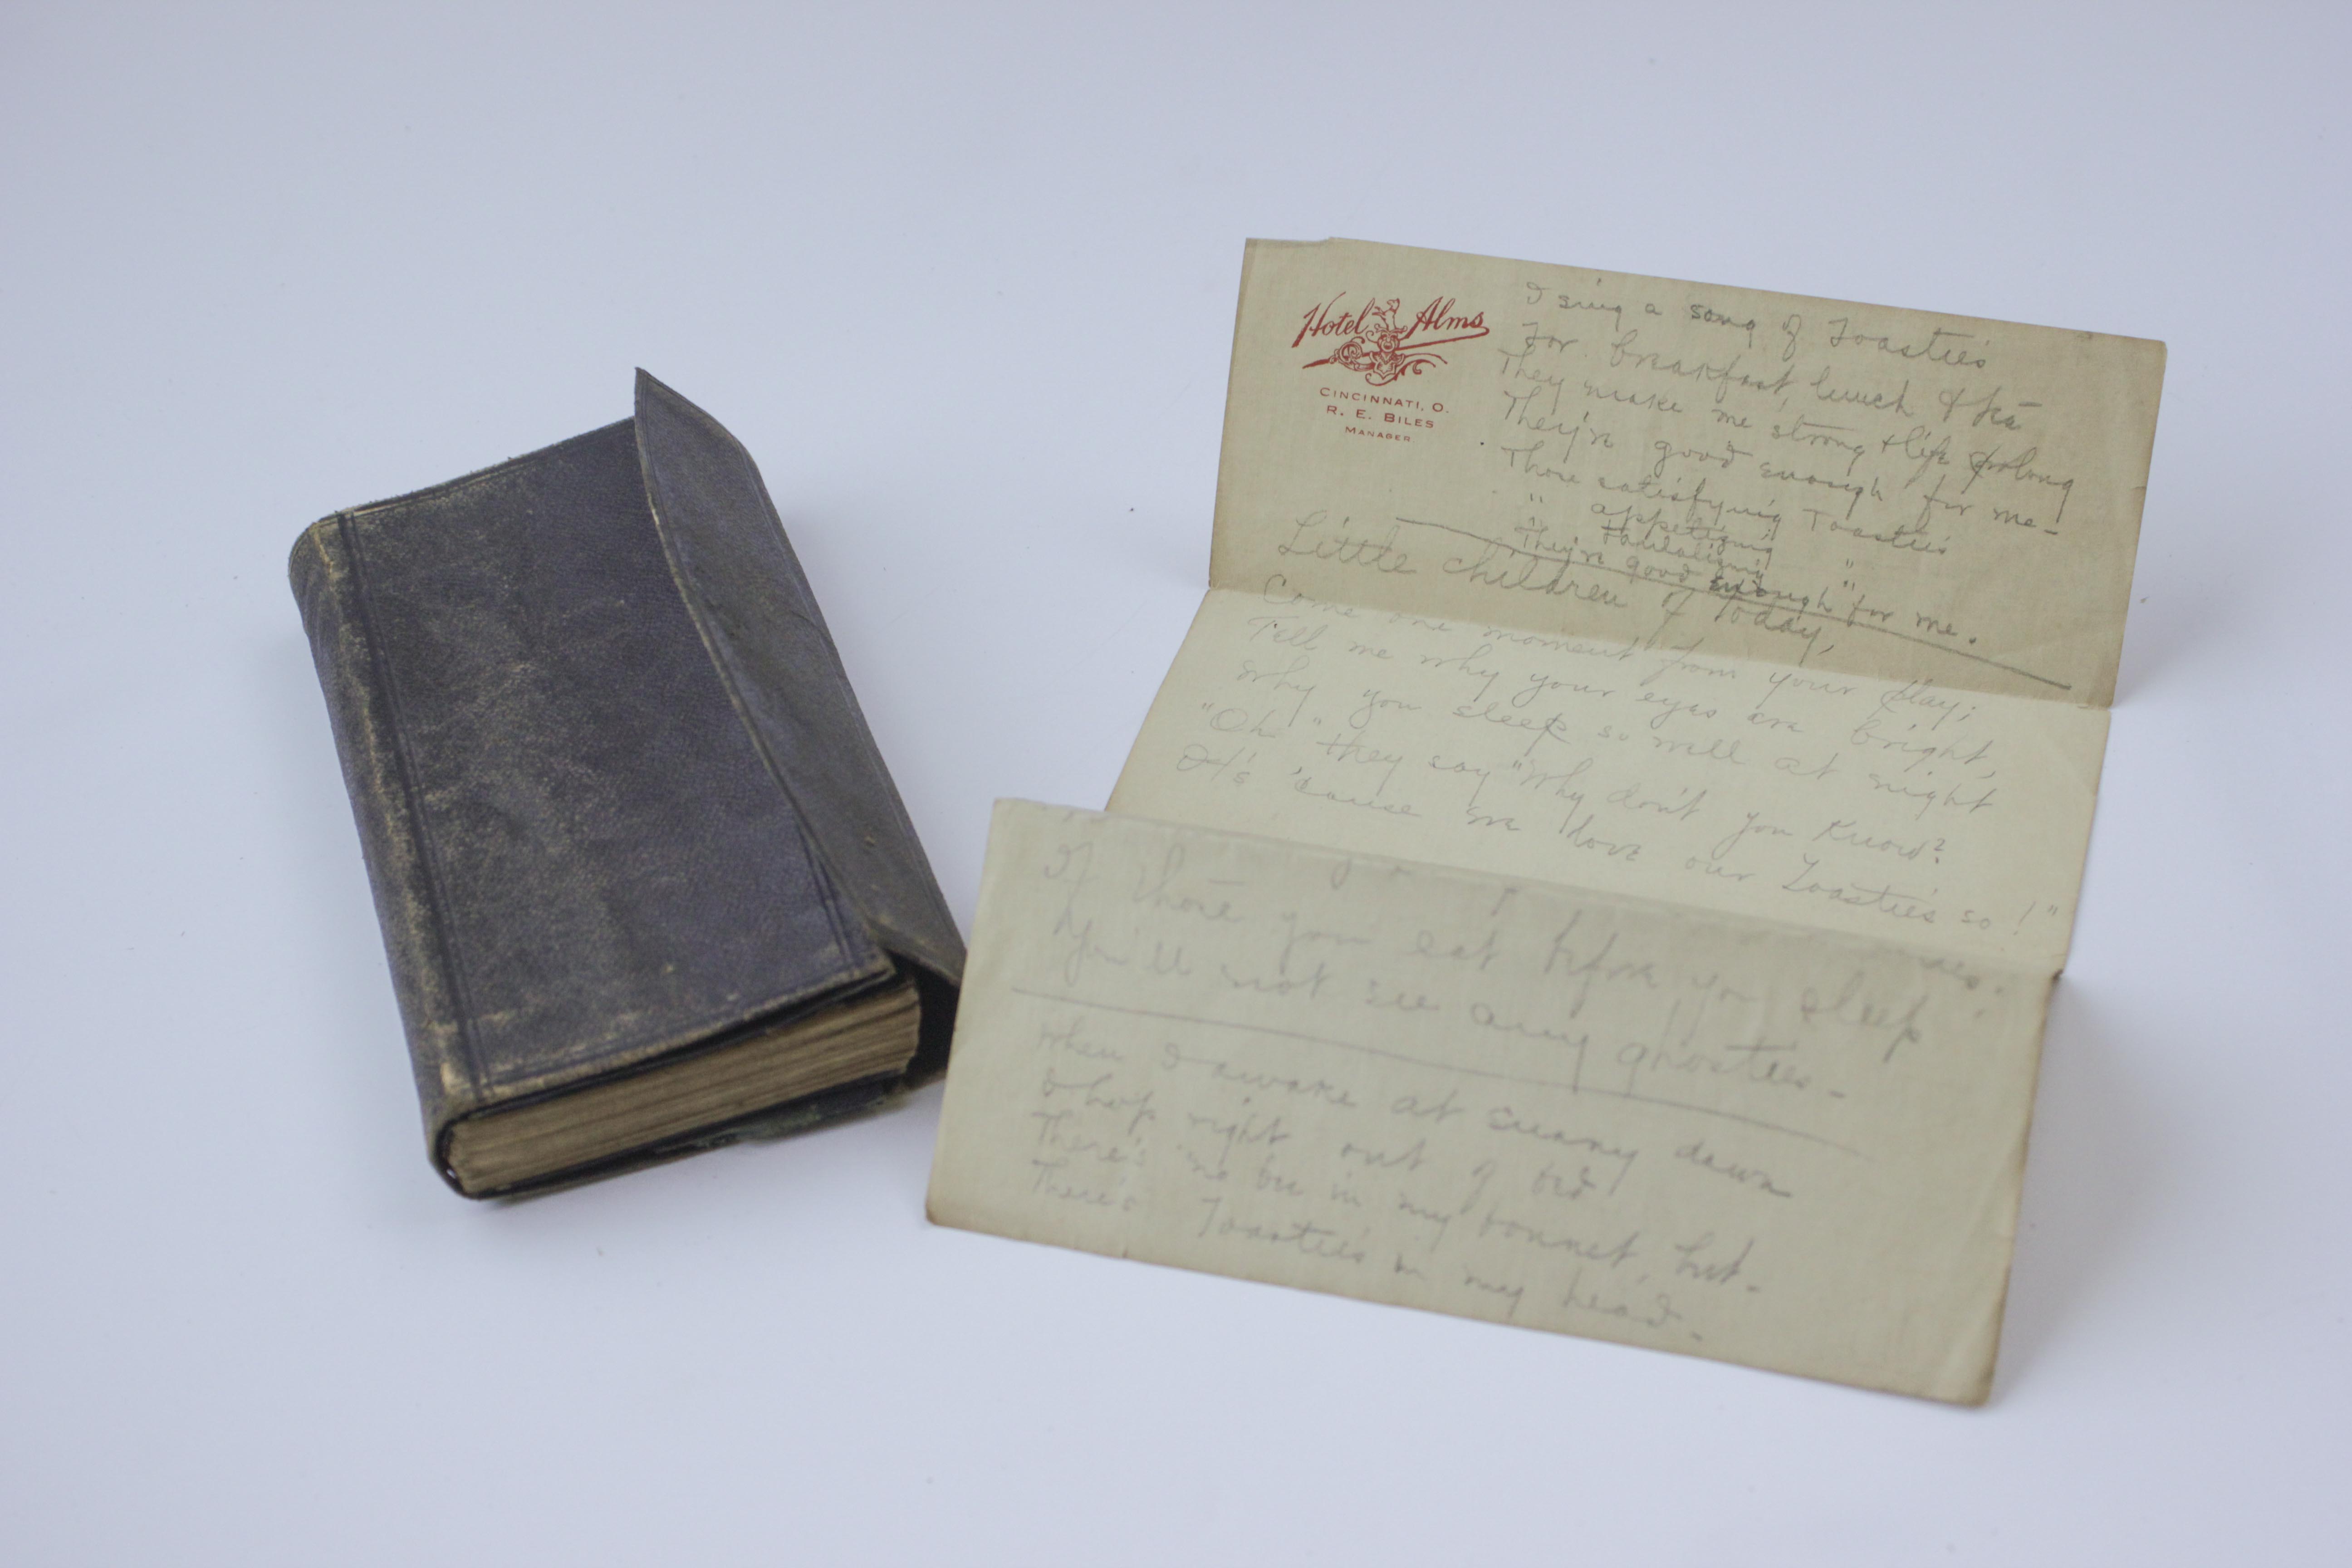 Hotel Alms
CINCINNATI, O.
R. E. BILES
MANAGER
I sing a song of Toasties
For breakfast, lunch & tea
They make me strong & life prolong
They're good enough for me –
Those satisfying Toasties
" appetizing "
" tantalizing "
They're good enough for me.
Little children of Today,
Come one moment from your play;
Tell me why your eyes are bright,
Why you sleep so well at night
"Oh" they say "Why don't you know?
It's 'cause we love our Toasties so!"
If those you eat before you sleep
You'll not see any ghosties –
When I awake at sunny dawn
& hop right out of bed
There's no bee in my bonnet, but –
There's Toasties in my head –